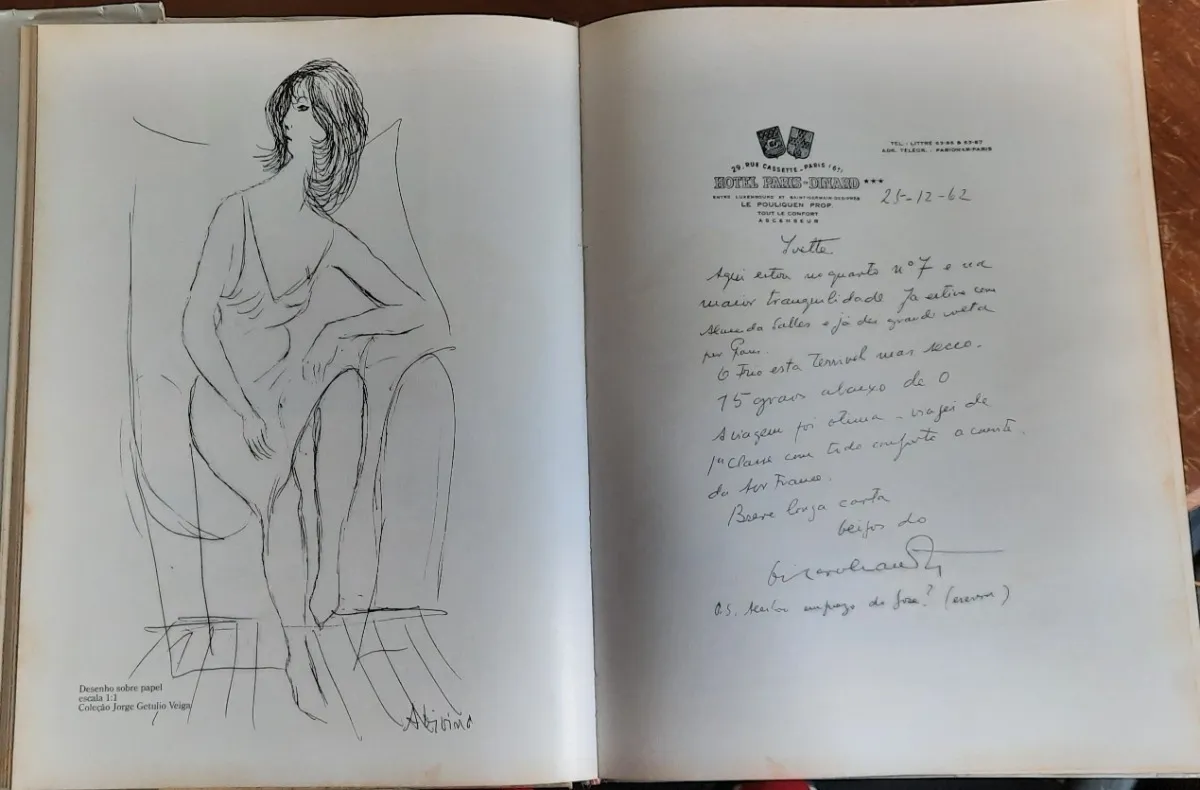 Desenho sobre papel
escala 1:1
Coleção Jorge Getulio Veiga
29, RUE CASSETTE - PARIS (6e)
HOTEL PARIS-DINARD ***
ENTRE LUXEMBOURG ET SAINT-GERMAIN-DES-PRÉS
LE POULIQUEN PROP.
TOUT LE CONFORT
ASCENSEUR
TEL. : LITTRÉ 63-86 & 63-87
ADR. TÉLÉGR. : PARIDINAR-PARIS
25-12-62
Yvette
Aqui estou no quarto nº 7 e na
maior tranquilidade Já estive com
Almeida Salles e já dei grande volta
por Paris.
O Frio esta Terrivel mas secco.
15 graos abaixo de 0
A viagem foi otima - viajei de
1ª Classe com todo conforto a convite
da Air France.
Breve longa carta
beijos do
Di Cavalcanti
P.S. do José? (escreva)